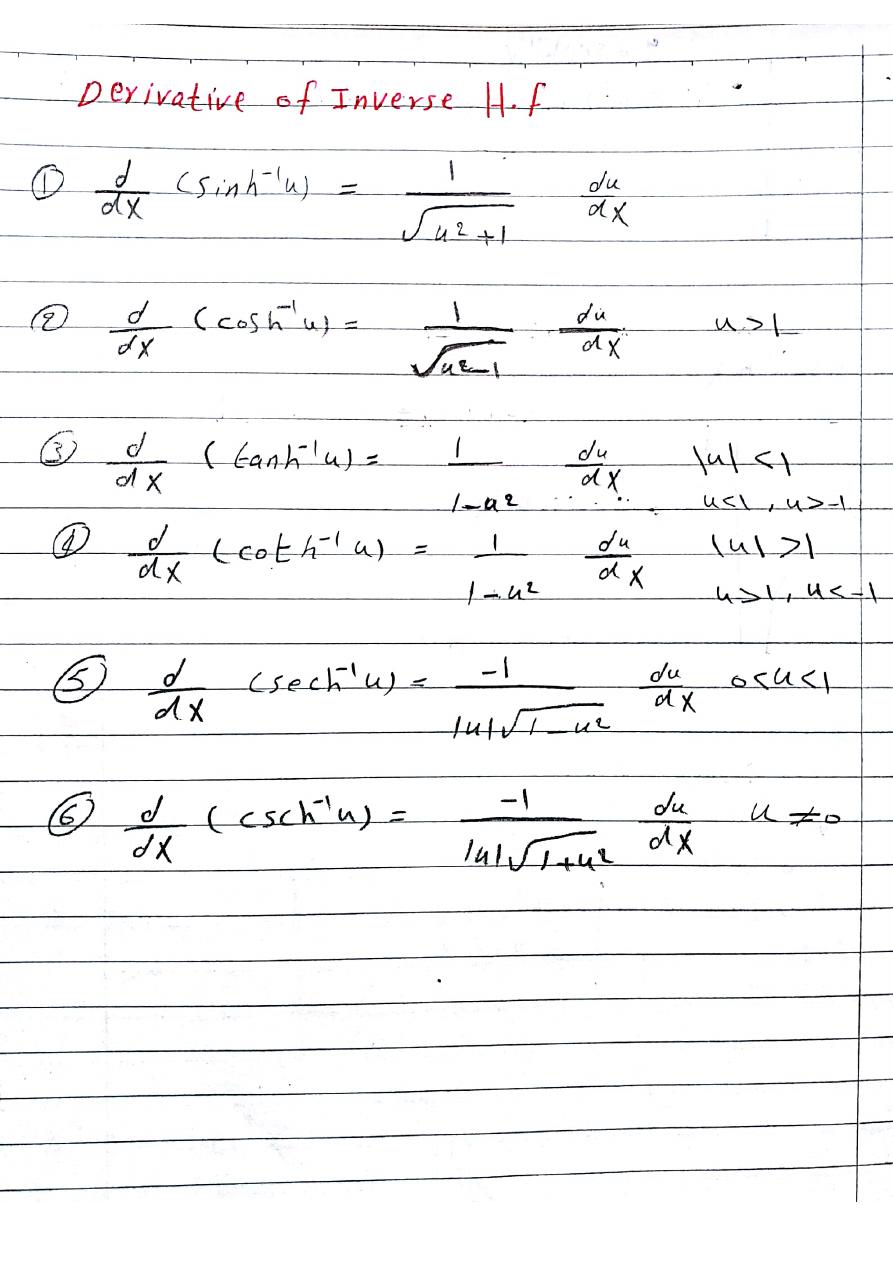 Derivative of Inverse H.f
① d/dx (sinh⁻¹u) = 1/√(u²+1) du/dx
② d/dx (cosh⁻¹u) = 1/√(u²-1) du/dx u>1
③ d/dx (tanh⁻¹u) = 1/(1-u²) du/dx |u|<1
u<1, u>-1
④ d/dx (coth⁻¹u) = 1/(1-u²) du/dx |u|>1
u>1, u<-1
⑤ d/dx (sech⁻¹u) = -1/(|u|√(1-u²)) du/dx 0<u<1
⑥ d/dx (csch⁻¹u) = -1/(|u|√(1+u²)) du/dx u≠0